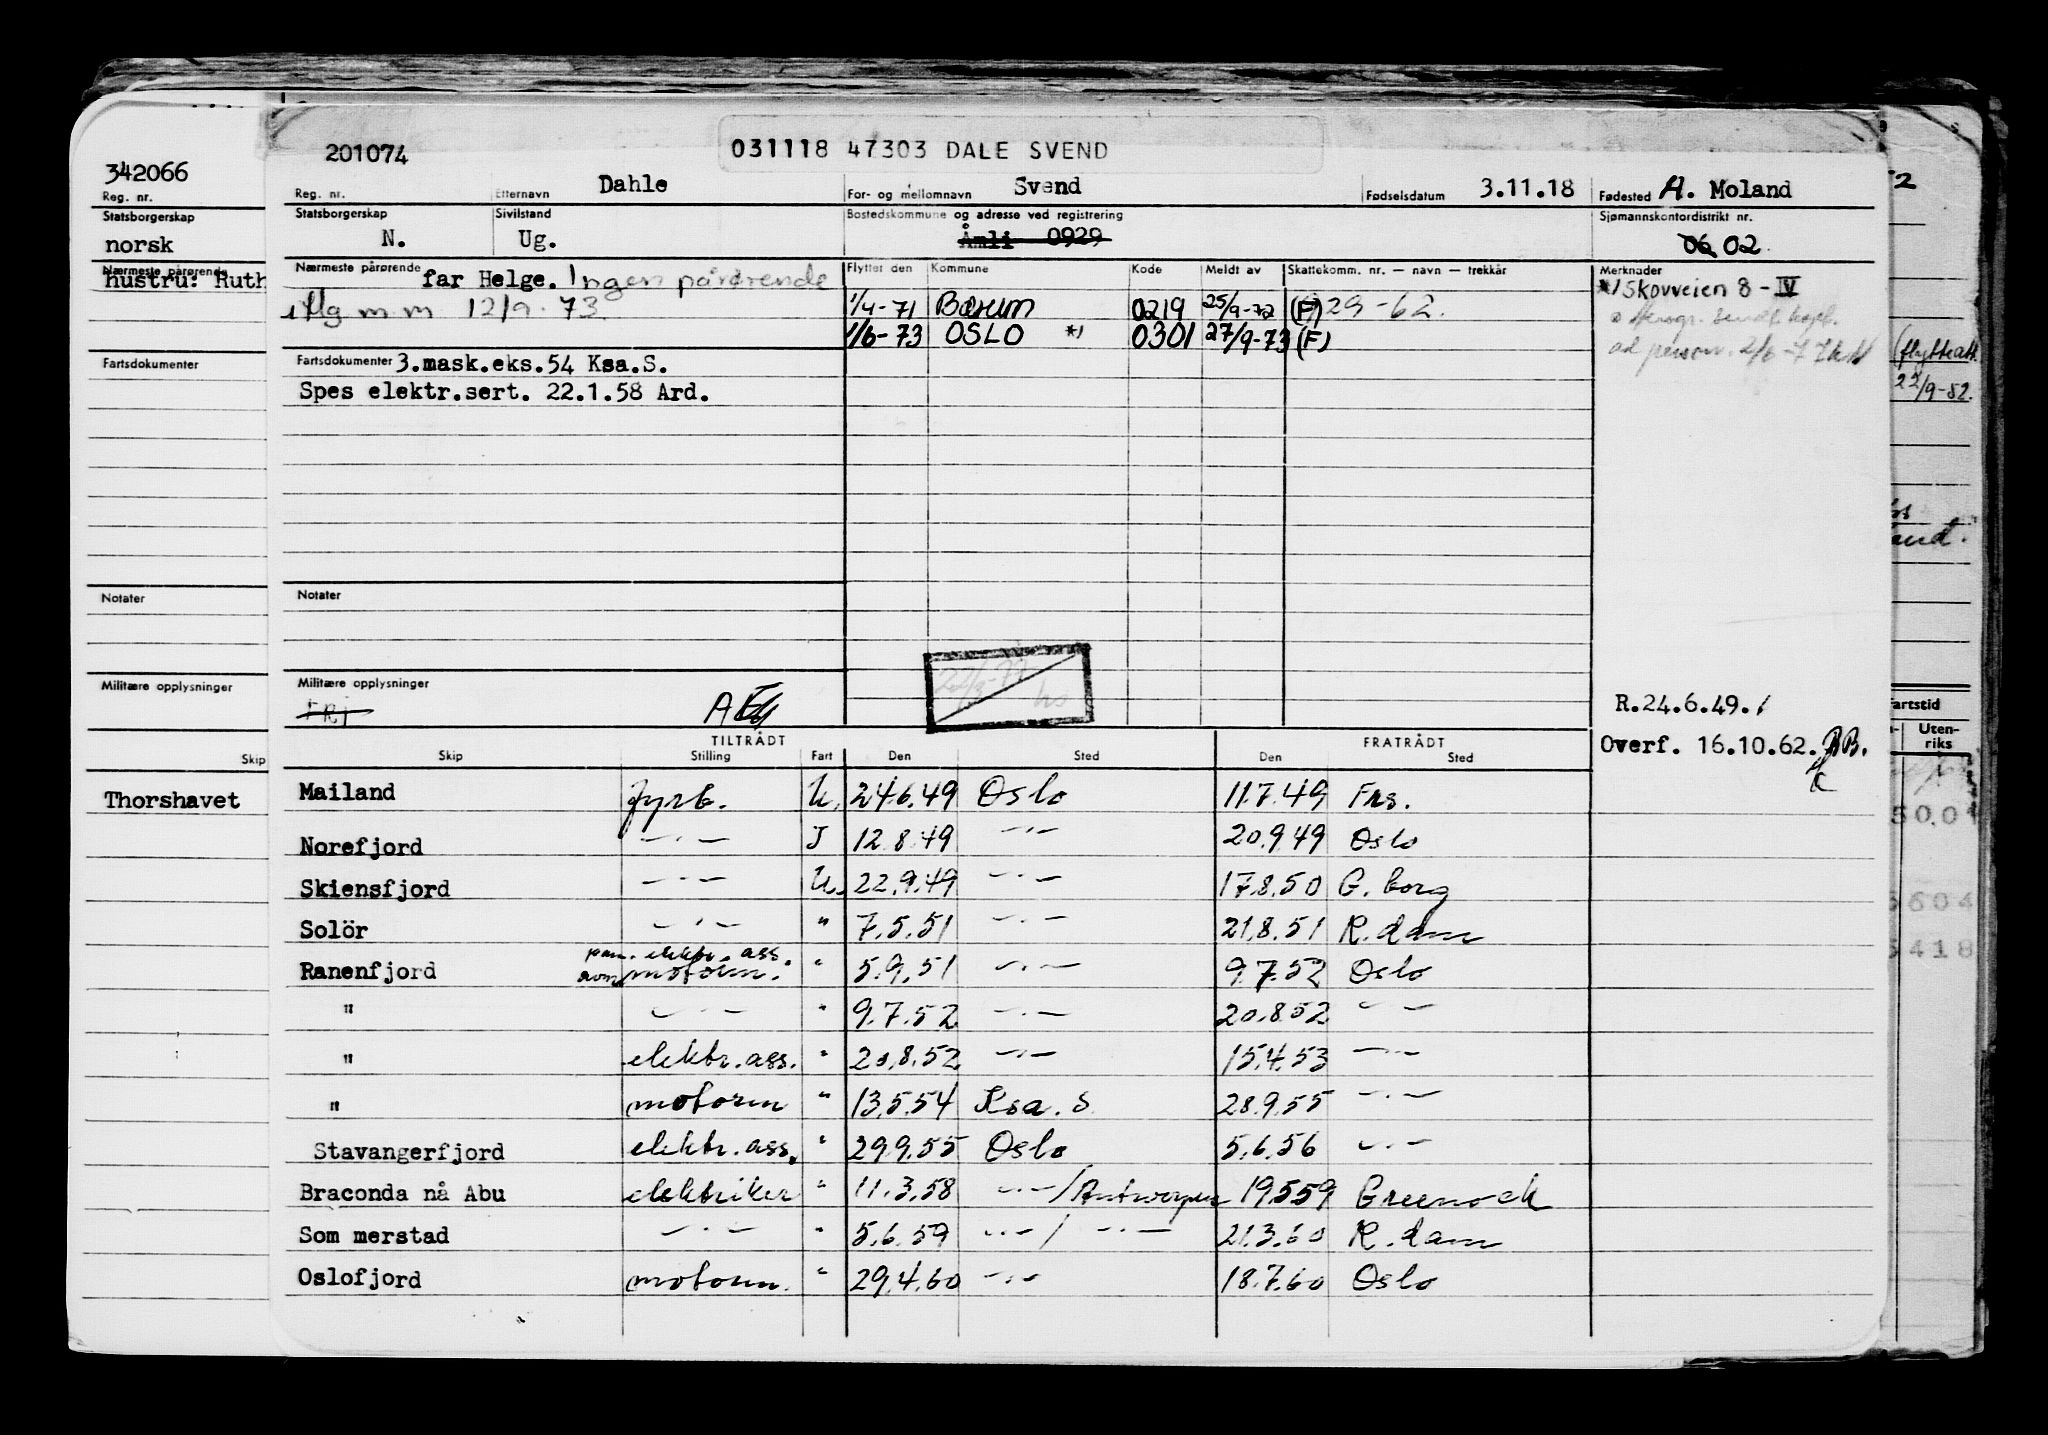 342066
Reg. nr.
Statsborgerskap
norsk
Nærmeste pårørende
hustru: Ruth
Fartsdokumenter
Notater
Militære opplysninger
Skip
Thorshavet
201074
031118 47303 DALE SVEND
Reg. nr. Etternavn Dahle For- og mellomnavn Svend Fødselsdatum 3.11.18 Fødested A. Moland
Statsborgerskap Sivilstand Bostedskommune og adresse ved registrering Sjømannskontordistrikt nr.
N. Ug. Åmli 0929 06 02
Nærmeste pårørende far Helge. Ingen pårørende Flyttet den Kommune Kode Meldt av Skattekomm. nr. — navn — trekkår Merknader
m m 12/9-73. 1/4-71 Bærum 0219 25/9-72 (F) 29-62. *) Skovveien 8-IV
1/6-73 OSLO *) 0301 27/9-73 (F)
Fartsdokumenter 3.mask.eks.54 Ksa.S.
Spes elektr.sert. 22.1.58 Ard.
Notater
Militære opplysninger
FRI
R.24.6.49.
Overf. 16.10.62. BB.
TILTRÅDT FRATRÅDT
Skip Stilling Fart Den Sted Den Sted
Mailand fyrb. U. 24.6.49 Oslo 11.7.49 Frs.
Norefjord —·— J 12.8.49 —·— 20.9.49 Oslo
Skiensfjord —·— U. 22.9.49 —·— 17.8.50 G.borg
Solör —·— " 7.5.51 —·— 21.8.51 R.dam
elektr. ass.
Ranenfjord motorm. " 5.9.51 —·— 9.7.52 Oslo
" —·— " 9.7.52 —·— 20.8.52 —·—
" elektr.ass. " 20.8.52 —·— 15.4.53 —·—
" motorm " 13.5.54 Ksa. S. 28.9.55 —·—
Stavangerfjord elektr.ass. " 29.9.55 Oslo 5.6.56 —·—
Braconda nå Abu elektriker " 11.3.58 —·—/Antwerpen 19.5.59 Greenock
Som merstad —·— " 5.6.59 —·—/—·— 21.3.60 R.dam
Oslofjord motorm. " 29.4.60 —·— 18.7.60 Oslo
(flyttealt.
22/9-82.
Fartstid
Uten-
riks